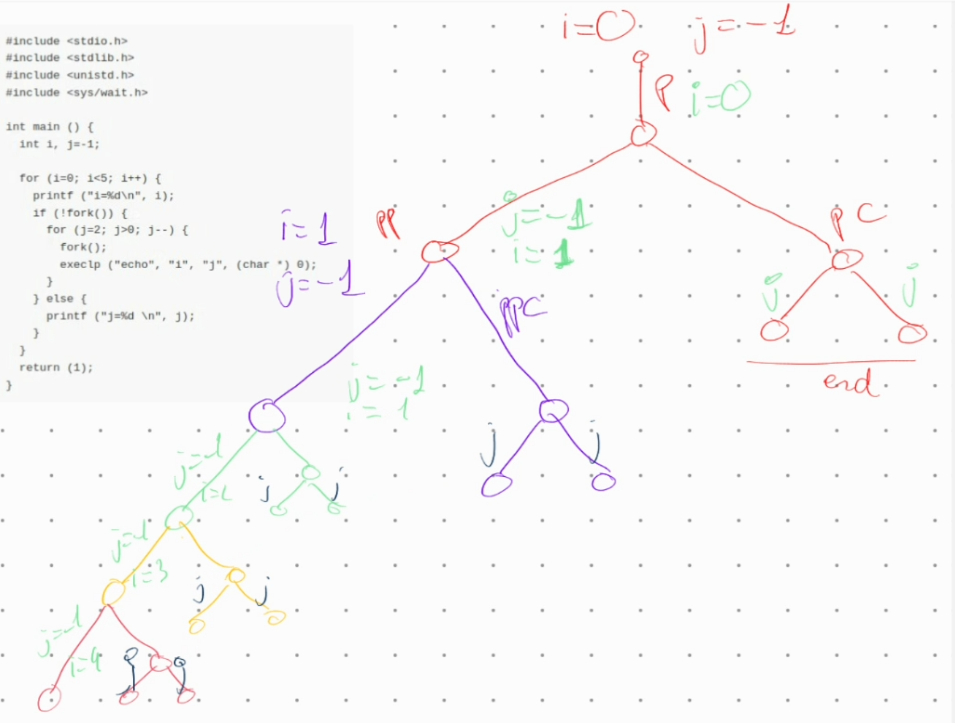 #include <stdio.h>
#include <stdlib.h>
#include <unistd.h>
#include <sys/wait.h>
int main () {
int i, j=-1;
for (i=0; i<5; i++) {
printf ("i=%d\n", i);
if (!fork()) {
for (j=2; j>0; j--) {
fork();
execlp ("echo", "i", "j", (char *) 0);
}
} else {
printf ("j=%d \n", j);
}
}
return (1);
}
i=0 j=-1
P i=0
PP j=-1 PC
i=1 i=1
j=-1
j j
PPC
end
j=-1
i=1
j j
j=-1
j j
j=-1
i=3
j j
j=-1
i=4